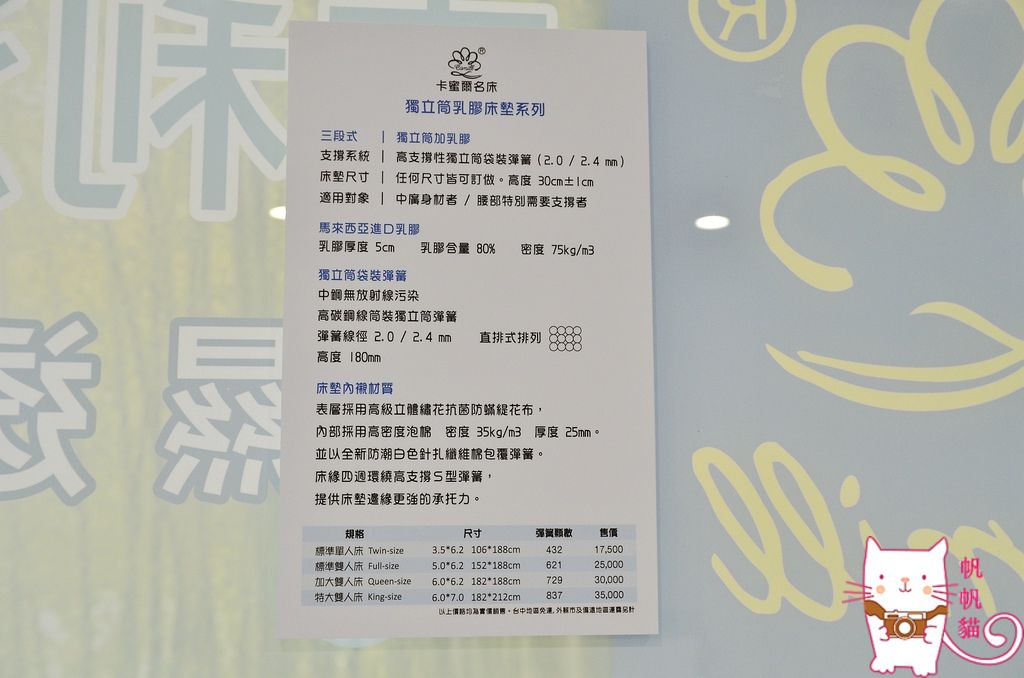 卡蜜爾名床
獨立筒乳膠床墊系列
三段式 | 獨立筒加乳膠
支撐系統 | 高支撐性獨立筒袋裝彈簧 (2.0 / 2.4 mm)
床墊尺寸 | 任何尺寸皆可訂做。高度 30cm±1cm
適用對象 | 中廣身材者 / 腰部特別需要支撐者
馬來西亞進口乳膠
乳膠厚度 5cm 乳膠含量 80% 密度 75kg/m3
獨立筒袋裝彈簧
中鋼無放射線污染
高碳鋼線筒裝獨立筒彈簧
彈簧線徑 2.0 / 2.4 mm 直排式排列
高度 180mm
床墊內襯材質
表層採用高級立體繡花抗菌防蟎緹花布，
內部採用高密度泡棉 密度 35kg/m3 厚度 25mm。
並以全新防潮白色針扎纖維棉包覆彈簧。
床緣四週環繞高支撐S型彈簧，
提供床墊邊緣更強的承托力。
規格 尺寸 彈簧顆數 售價
標準單人床 Twin-size 3.5*6.2 106*188cm 432 17,500
標準雙人床 Full-size 5.0*6.2 152*188cm 621 25,000
加大雙人床 Queen-size 6.0*6.2 182*188cm 729 30,000
特大雙人床 King-size 6.0*7.0 182*212cm 837 35,000
以上價格均為實價銷售。台中地區免運,外縣市及偏遠地區運費另計
帆帆貓